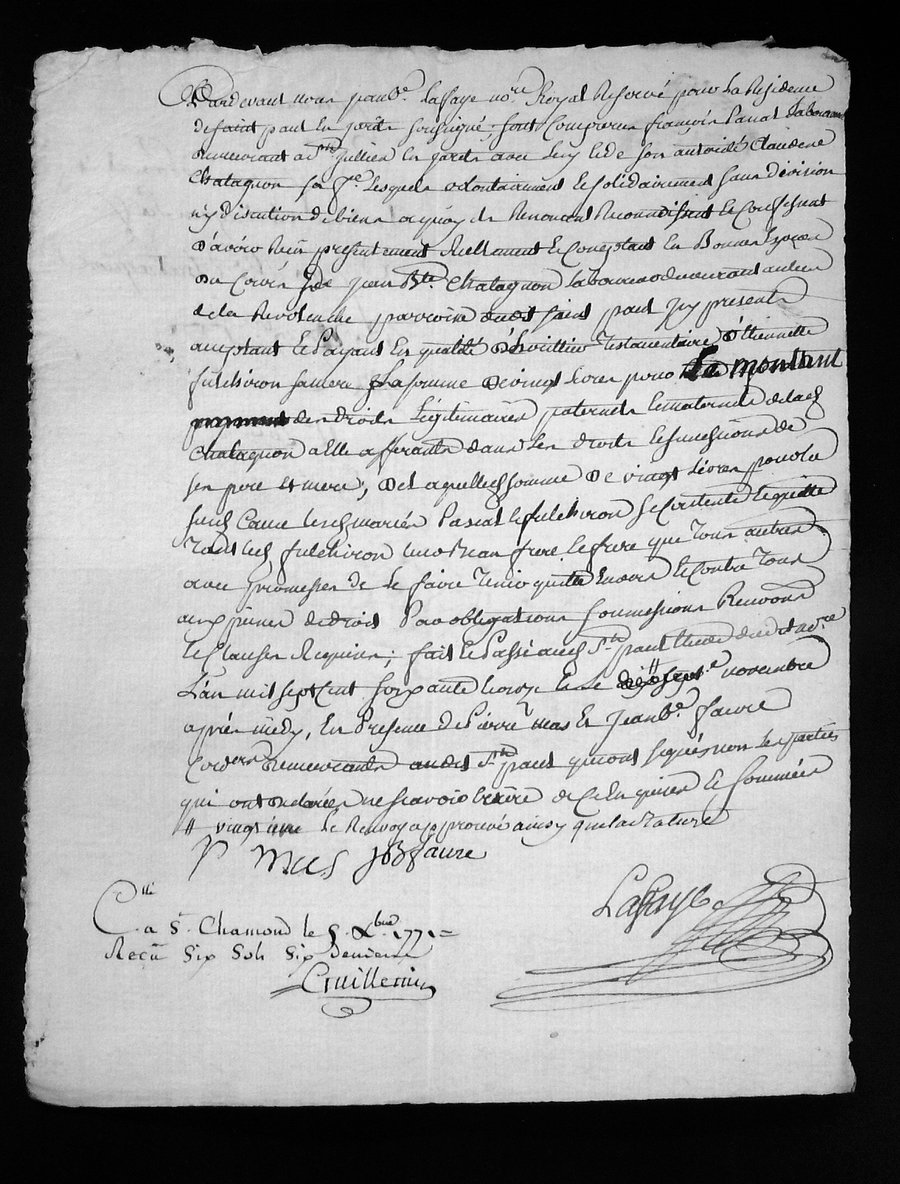 Pardevant nous jean Bte. Laffaye nore. Royal Reservé pour La Residence
de saint paul En jarêt soussigné, sont Comparus françois Laboureur
demeurant a st. jullien En jarêt avec Luy et de son autorité Claudine
Chatagnon sa fe. Lesquels volontairement et solidairement sans division
ny discution de biens a quoy ils Renoncent Reconnoissent et Confessent
D'avoir Reçu presentement Reellement et Comptant En Bonnes Especes
Du Cours de jean Bte. Chatagnon Laboureur demeurant au lieu
de la parroisse dudit saint paul Icy present
acceptant et Payant En qualité D'heritier Testamentaire D'Etiennette
fulchiron sa mere La somme de vingt Livres pour Le montant
des droits Légitimaires paternels et maternels de lad.
Chatagnon a Elle afferants dans Les droits et successions de
ses pere et mere, De Laquelle somme De vingt Livres pour la
susd. Cause Lesd. mariés et fulchiron se Contente et quitte
Tant led. fulchiron Leur Beau frere et frere que Tous autres
avec promesses de Le faire Tenir quitte Envers et Contre Tous
aux peines de droit Par obligations soumissions Renvons.
et Clauses Requises; fait et Passé aud. St. paul Etude dudit nore.
L'an mil sept Cent soixante onze et Le novembre
après midy, En Presence de Pierre mas et jean Bte. faure
Cordrs. demeurants audit St. paul qui ont signés non les parties
qui ont declarées ne sçavoir Ecrire de Ce Enquises et sommées
# vingt une Le Renvoy approuvé ainsy que la rature
P Mas JB faure
Lafaye
Cllé
a St. Chamond le 5 Xbre 1771
Reçu Six Sols Six deniers
Cruillemin